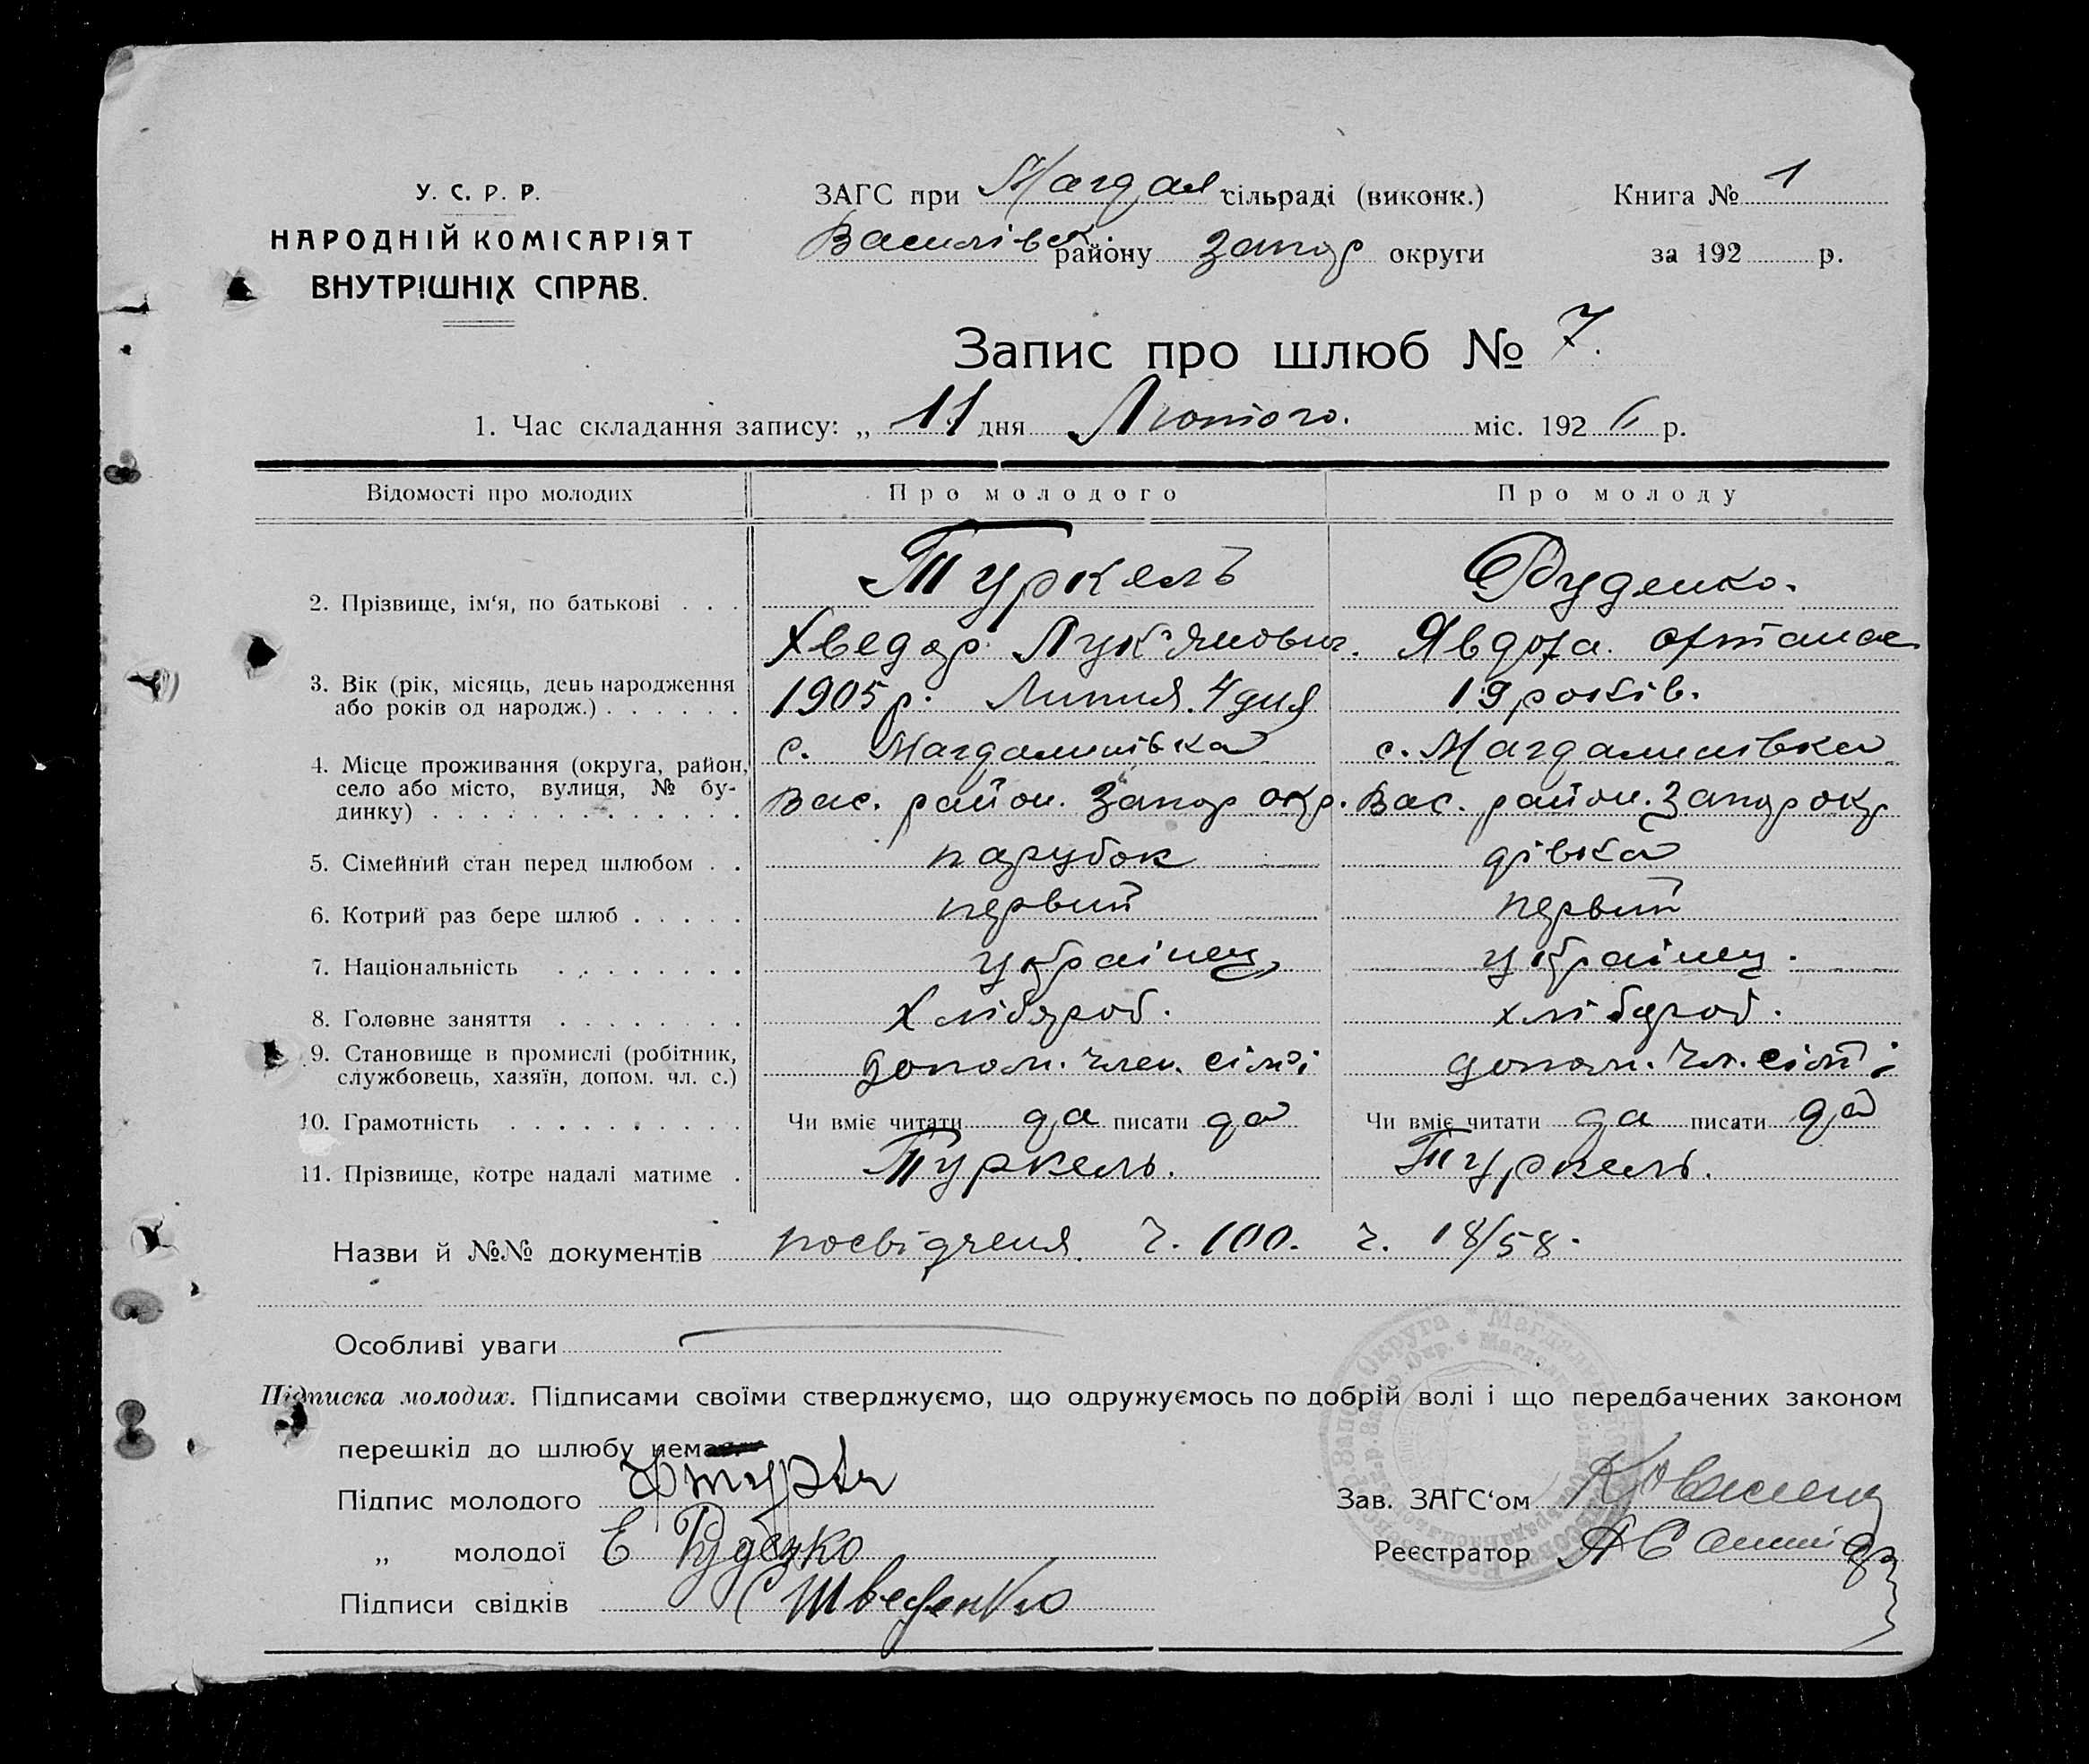 У. С. Р. Р.
НАРОДНІЙ КОМІСАРІЯТ
ВНУТРІШНІХ СПРАВ.
ЗАГС при Магдал сільраді (виконк.)
Василівск. району Запор округи
Книга № 1
за 192 р.
Запис про шлюб № 7.
1. Час складання запису: „ 11 дня Лютого. міс. 192 6 р.
Відомості про молодих Про молодого Про молоду
2. Прізвище, ім‘я, по батькові . . . Туркель Руденко.
Хведор Лук'янович. Явдоха
3. Вік (рік, місяць, день народження
або років од народж.) . . . . . . 1905 р. Липня. 4 дня 19 років.
4. Місце проживання (округа, район,
село або місто, вулиця, № бу-
динку) . . . . . . . . . . . . .
с. Магдалинівка с. Магдалинівка
Вас. район. Запор окр. Вас. район. Запор окр
5. Сімейний стан перед шлюбом . . парубок дівка
6. Котрий раз бере шлюб . . . . . первий первий
7. Національність . . . . . . . . українец українец.
8. Головне заняття . . . . . . . . хлібороб. хлібороб.
9. Становище в промислі (робітник,
службовець, хазяїн, допом. чл. с.) допом. член. сім'ї допом. чл. сім'ї
10. Грамотність . . . . . . . . . . Чи вміє читати да писати да Чи вміє читати да писати да
11. Прізвище, котре надалі матиме . Туркель. Туркель.
Назви й №№ документів посвідченя ч. 100. ч. 18/58.
Особливі уваги
Підписка молодих. Підписами своїми стверджуємо, що одружуємось по добрій волі і що передбачених законом
перешкід до шлюбу нема
Підпис молодого
„ молодої Е Руденко
Підписи свідків
Зав. ЗАГС‘ом
Реєстратор